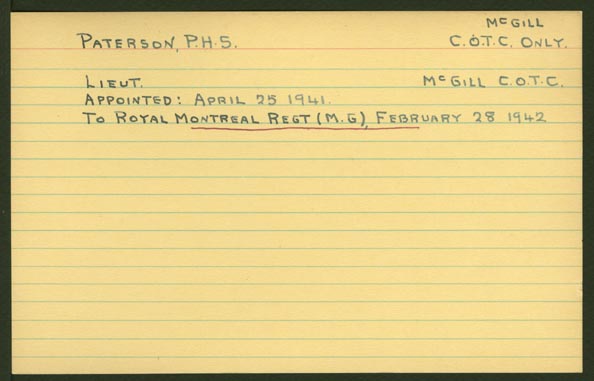 McGILL
PATERSON, P.H.S. C.O.T.C. ONLY.
LIEUT. McGILL C.O.T.C.
APPOINTED: APRIL 25 1941.
TO ROYAL MONTREAL REGT (M.G), FEBRUARY 28 1942